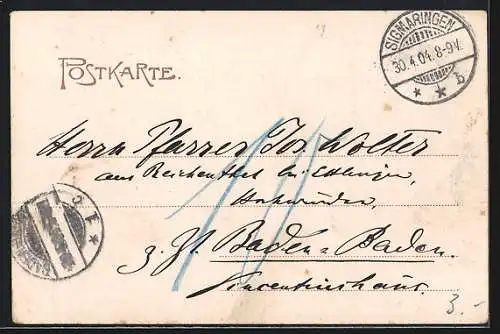 SIGMARINGEN
30.4.04.8-9V.
* * b
POSTKARTE.
Herrn Pfarrer Jos. Wolter
aus Reichenthal bei Ettlingen,
Hochwürden,
z. Zt. Baden-Baden.
Vincentiushaus.
3.-